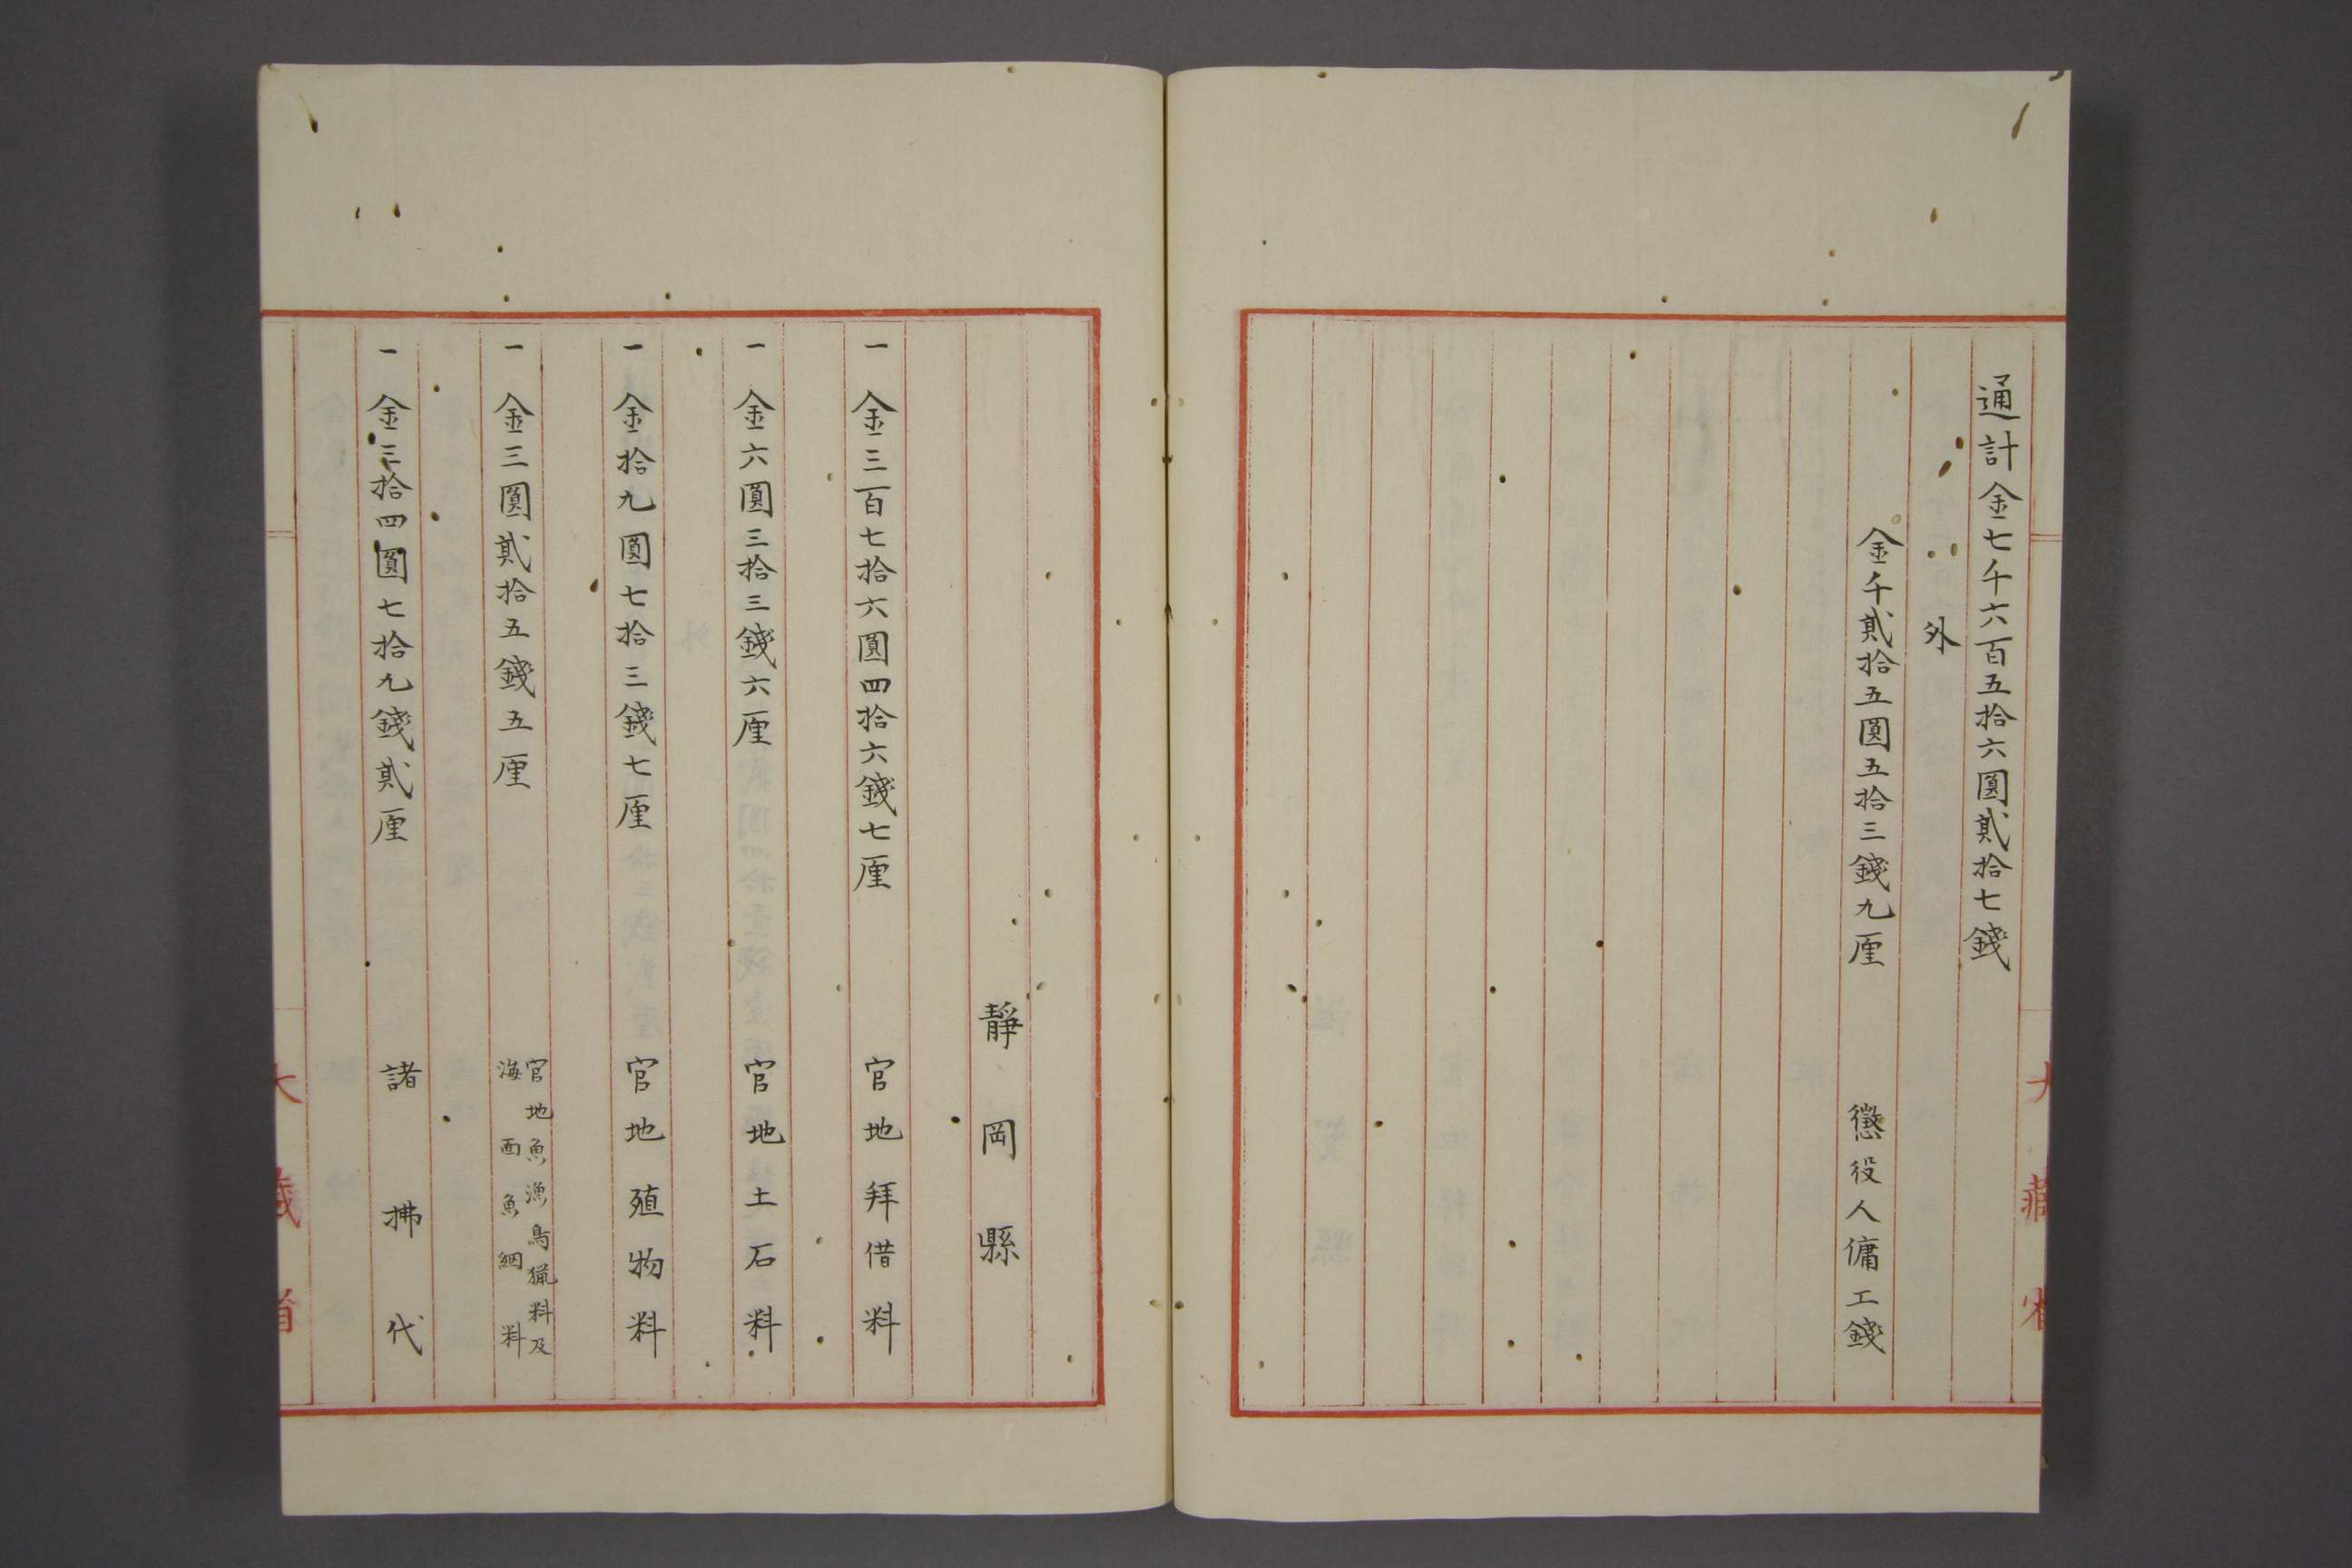 通計金七千六百五拾六圓貳拾七錢
外
金千貳拾五圓五拾三錢九厘　懲役人傭工錢
大藏省
靜岡縣
一　金三百七拾六圓四拾六錢七厘　官地拜借料
一　金六圓三拾三錢六厘　官地土石料
一　金拾九圓七拾三錢七厘　官地殖物料
一　金三圓貳拾五錢五厘　官地魚漁鳥猟料及
海面魚網料
一　金三拾四圓七拾九錢貳厘　諸拂代
大藏省